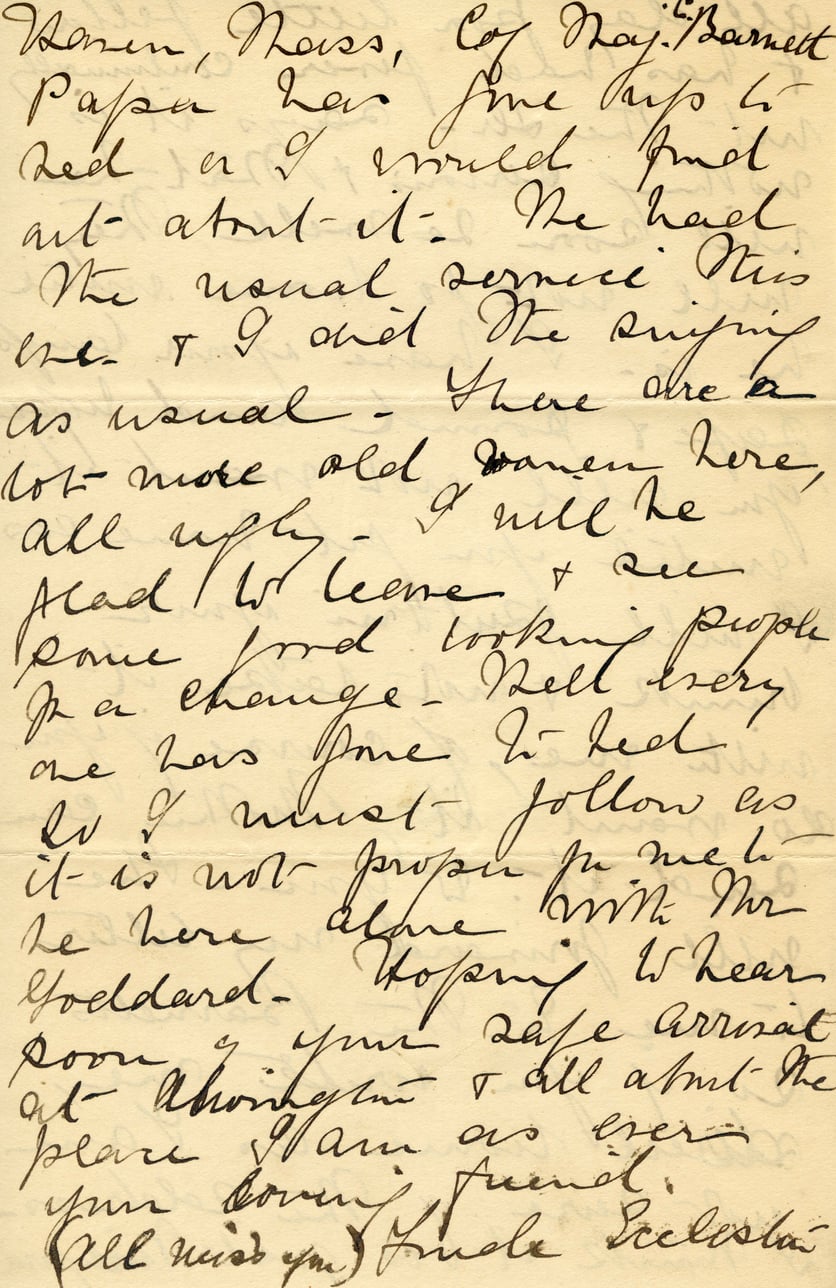 Haven, Mass, C/o Maj. C. Barnett
Papa has gone up to
bed or I would find
out about it. We had
the usual service this
eve. & I did the singing
as usual. There are a
lot more old women here,
all ugly. I will be
glad to leave & see
some good looking people
for a change. Well every
one has gone to bed
so I must follow as
it is not proper for me to
be here alone with Mr
Goddard. Hoping to hear
soon of your safe arrival
at Abington & all about the
place I am as ever
your loving friend.
(All miss you) Trude Eccleston